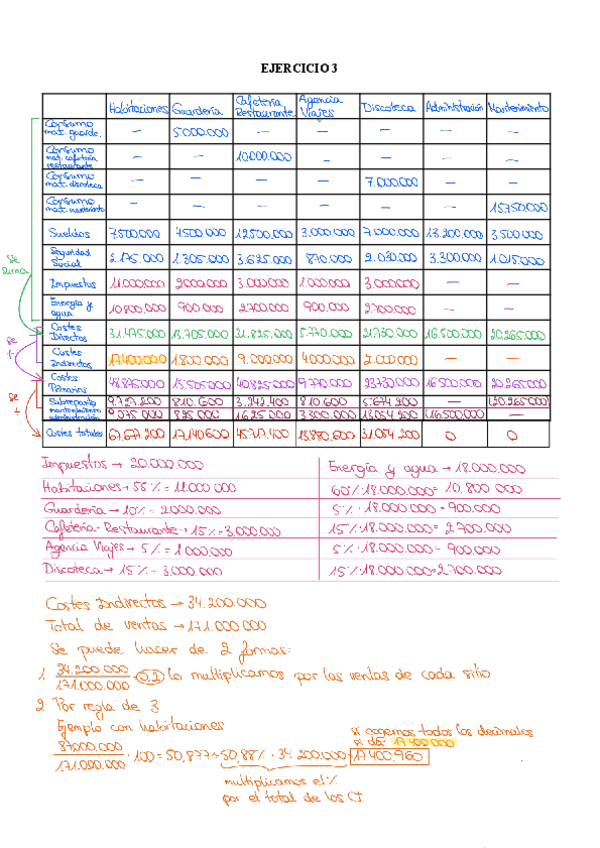 EJERCICIO 3
Habitaciones Guardería Cafetería Restaurante Agencia Viajes Discoteca Administración Mantenimiento
Consumo mat. guarde. — 5000.000 — — — — —
Consumo mat. cafetería restaurante — — 10.000.000 — — — —
Consumo mat. discoteca — — — — 7.000.000 — —
Consumo mat. mantenimiento — — — — — — 15.750.000
Sueldos 7.500.000 4500.000 12.500.000 3.000.000 7.000.000 13.200.000 3.500.000
Seguridad Social 2.175.000 1.305.000 3.625.000 870.000 2.030.000 3.300.000 1.015.000
Impuestos 11.000.000 2000.000 3.000.000 1.000.000 3.000.000 — —
Energía y agua 10.800.000 900.000 2.700.000 900.000 2.700.000 — —
Se suma
Costes Directos 31.475.000 13.705.000 31.825.000 5.770.000 21.730.000 16.500.000 20.265.000
Se +
Costes Indirectos 17.400.000 1.800.000 9.000.000 4.000.000 2.000.000 — —
Costes Primarios 48.875.000 15.505.000 40.825.000 9.770.000 23.730.000 16.500.000 20.265.000
Se +
Subreparto mantenimiento 810.600 3.242.400 810.600 —
administración 9.075.000 825.000 1.625.000 3.300.000
Costes totales 67.677.200 17.140.600 13.880.600 0 0
Impuestos → 20.000.000
Habitaciones → 55% = 11.000.000
Guardería → 10% = 2.000.000
Cafetería-Restaurante → 15% = 3.000.000
Agencia Viajes → 5% = 1.000.000
Discoteca → 15% = 3.000.000
Energía y agua → 18.000.000
60% · 18.000.000 = 10.800.000
5% · 18.000.000 = 900.000
15% · 18.000.000 = 2.700.000
5% · 18.000.000 = 900.000
15% · 18.000.000 = 2.700.000
Costes Indirectos → 34.200.000
Total de ventas → 171.000.000
Se puede hacer de 2 formas:
1. 34.200.000 / 171.000.000 = 0,2 lo multiplicamos por las ventas de cada sitio
2 Por regla de 3
Ejemplo con habitaciones
si cogemos todos los decimales
si da: 17.400.000
87000.000 / 171.000.000 · 100 = 50,877 → 50,88% · 34.200.000 = 17400.960
multiplicamos el %
por el total de los CI.